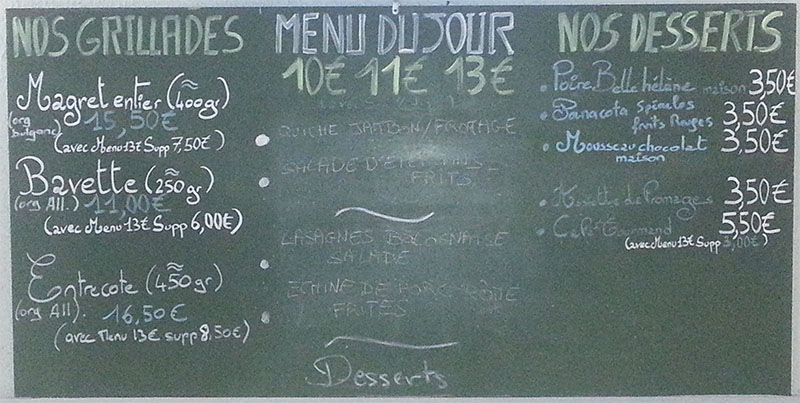 NOS GRILLADES
Magret entier (≈400gr)
(org bulgarie) 15,50€
(avec Menu 13€ Supp 7,50€)
Bavette (≈250gr)
(org All.) 11,00€
(avec Menu 13€ Supp 6,00€)
Entrecote (≈450gr)
(org All). 16,50€
(avec Menu 13€ supp 8,50€)
MENU DU JOUR
10€ 11€ 13€
QUICHE JAMBON/FROMAGE
SALADE
FRITS
LASAGNES BOLOGNAISE
SALADE
ECHINE DE PORC
FRITES
Desserts
NOS DESSERTS
Poire Belle hélène maison 3,50€
Panacota Spéculos
fruits Rouges 3,50€
Mousseau chocolat 3,50€
maison
Assiette de fromages 3,50€
Café Gourmand 5,50€
(avec Menu 13€ Supp 3,00€)